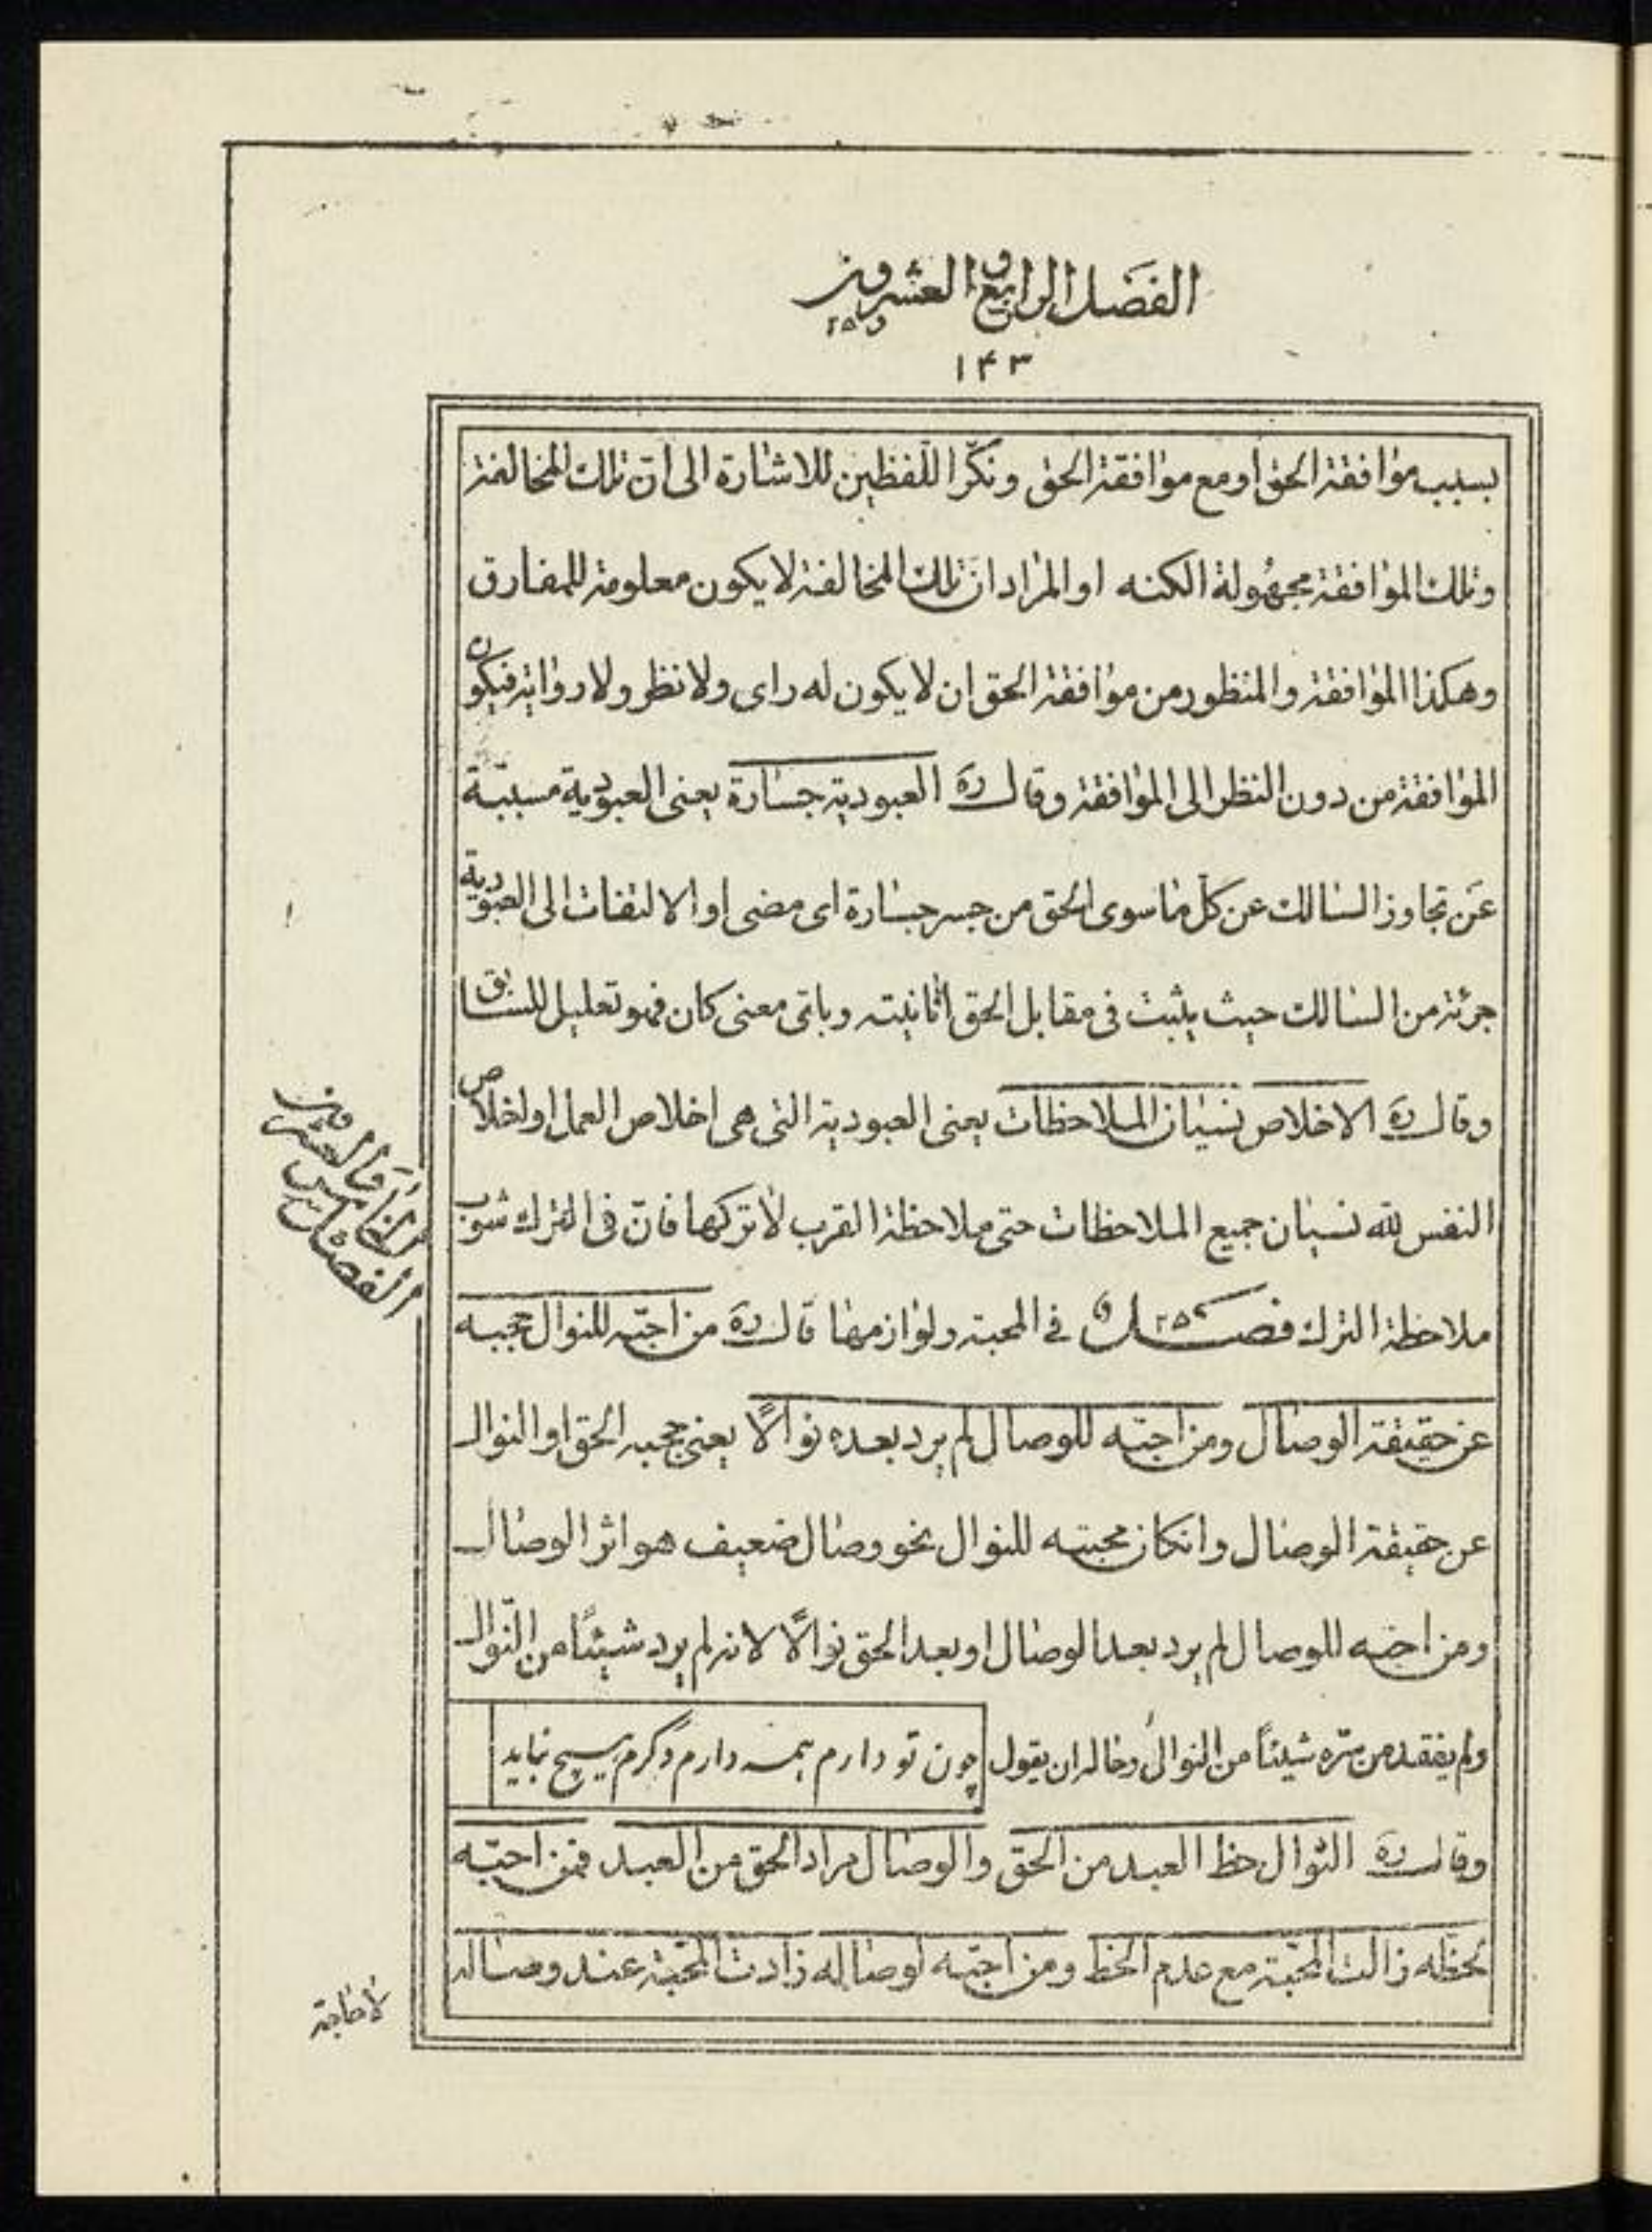 الفصل الرابع والعشرون
و ٢٥
١۴٣
بسبب موافقة الحق او مع موافقة الحق ونكّر اللّفظين للاشارة الى انّ تلك المخالفة
وتلك الموافقة مجهُولة الكنه او المراد انّ تلك المخالفة لا يكون معلومة للمفارق
وهكذا الموافقة والمنظور من موافقة الحق ان لا يكون له راى ولا نظر ولا رواية فيكون
الموافقة من دون النظر الى الموافقة وقال ره العبودية جسارة يعنى العبودية مسببّة
عَن تجاوز السالك عن كلّ ما سوى الحق من جسر جسارة اى مضى او الالتفات الى العبودية
جرئة من السالك حيث يثبت فى مقابل الحق اثانيته وباقى معنى كان فهو تعليل للسابق
وقال ره الاخلاص نسيان الملاحظات يعنى العبودية التى هى اخلاص العمل او اخلاص
النفس لله نسيان جميع الملاحظات حتى ملاحظة القرب لا تركها فانّ فى الترك شوب
ملاحظة الترك فصل ٢٥ في المحبة ولوازمها قال ره من احبّه للنوال حجبه
عن حقيقة الوصال ومن احبّه للوصال لم يرد بعده نوالًا يعنى حجبه الحق او النوال
عن حقيقة الوصال وانكان محبته للنوال نحو وصال ضعيف هو اثر الوصال
ومن احبّه للوصال لم يرد بعد الوصال او بعد الحق نوالًا لانه لم يرد شيئًا من النّوال
ولم يفقد من سرّه شيئاً من النوال وحاله ان يقول چون تو دارم همه دارم دگرم هیچ نباید
وقال ره النّوال حظ العبد من الحق والوصال مراد الحق من العبد فمن احبّه
لحظّه زالت المحبّة مع عدم الحظ ومن احبّه لوصاله زادت المحبّة عند وصاله
الفصل
الخامس
والعشرون
لا حاجة